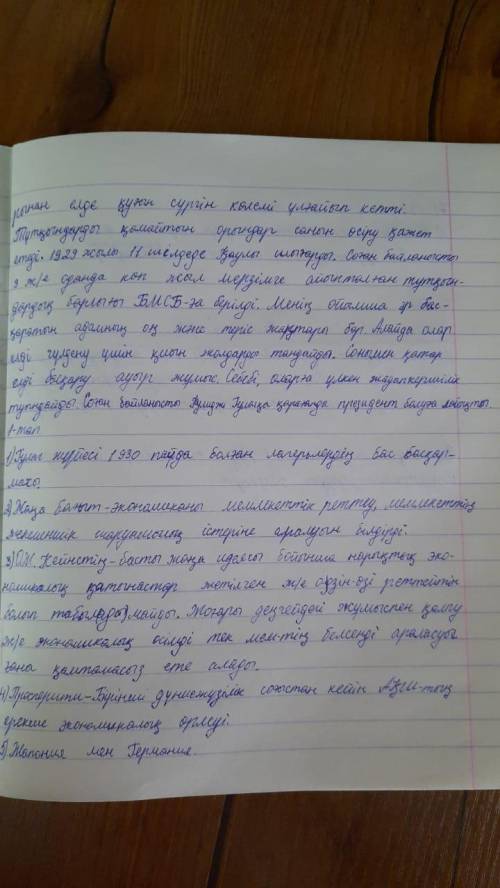 рынан елде қуғын сүргін көлемі ұлғайып кетті.
Тұтқындарды қамайтын орындар санын өсіру қажет
етіді. 1929 жылы 11 шілдеде Қаулы шығарды. Соған байланысты
3 ж/е одан да көп жыл мерзімге айыпталған тұтқын-
дардың барлығы БМСБ-ға берілді. Менің ойымша әр бас-
қаратын адамның оң және теріс жақтары бар. Алайда олар
елді гүлдену үшін қиын жолдарды таңдайды. Сонымен қатар
елді басқару ауыр жұмыс. Себебі, оларға үлкен жауапкершілік
туғыздайды. Соған байланысты қарағанда президент болуға лайықты.
1-тап
1) Гулаг жүйесі 1930 пайда болған лагерьлердің бас басқар-
масы.
2) Жаңа бағыт-экономиканы мемлекеттік реттеу, мемлекеттің
жекеменшік шаруашылық істеріне аралауын білдірді.
3) Дж. Кейнстің-басты жаңа идеясы бойынша нарықтық эко-
номикалық қатынастар жетілген ж/е өздін-өзі реттейтін
болып табылмайды. Жоғары деңгейдегі жұмыспен қамту
ж/е экономикалық өсімді тек мем-тің белсенді араласуы
ғана қамтамасыз ете алады.
4) Просперити-Бірінші дүниежүзілік соғыстан кейін АҚШ-тың
ерекше экономикалық өрлеуі.
5) Жапония мен Германия.